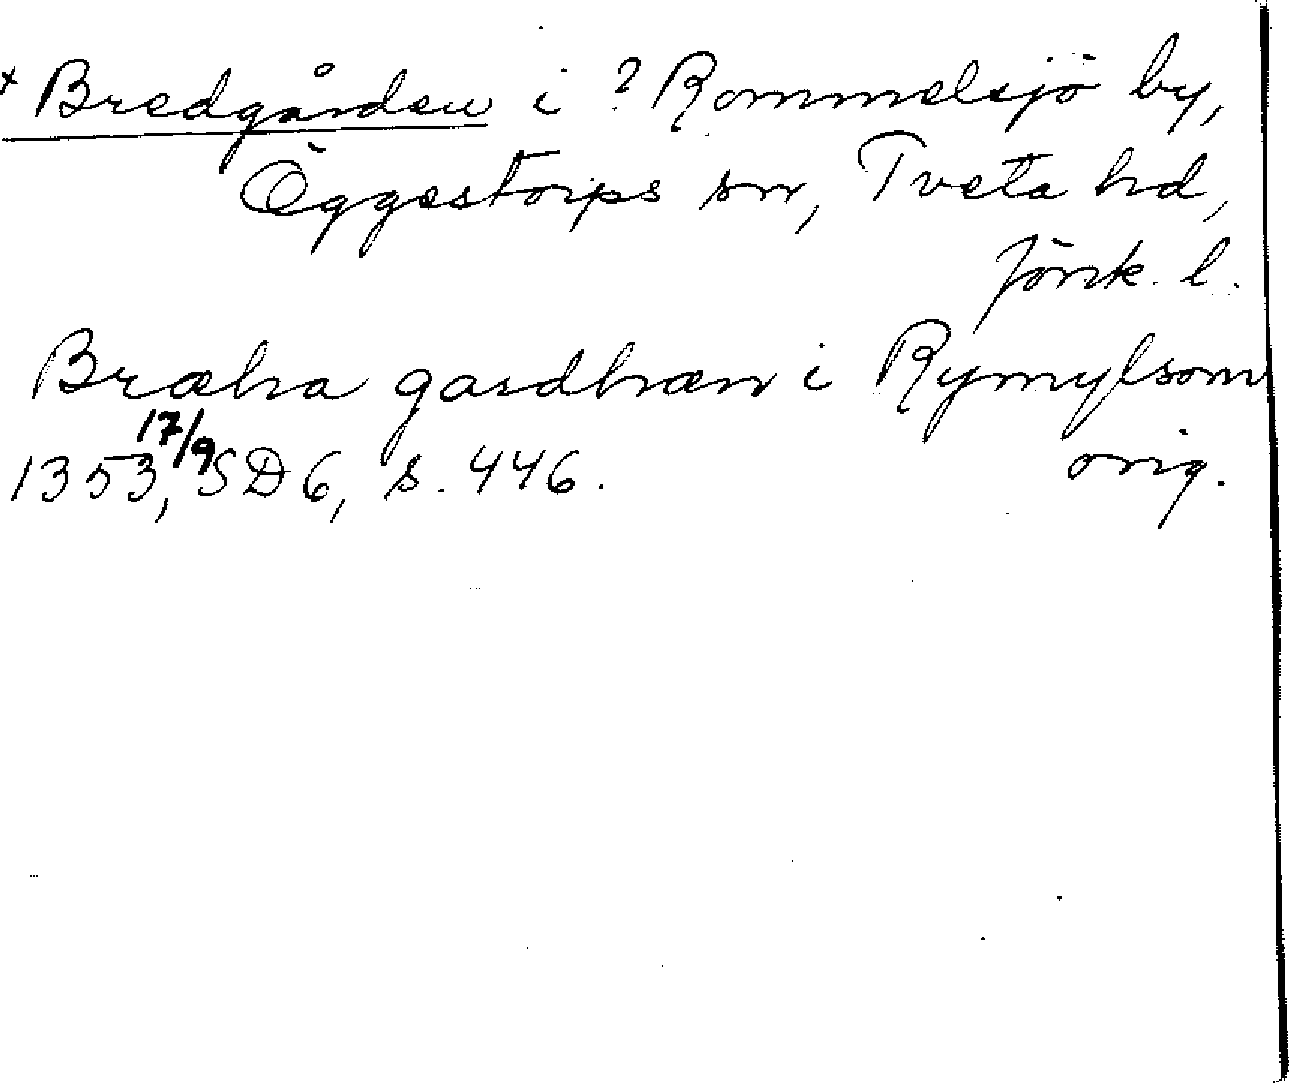 x Bredgården i ? Rommelsjö by,
Öggestorps sn, Tveta hd,
Jönk. l.
Bræha gardhæn i Rymylsom
1353 17/9, SD 6, s. 446. orig.